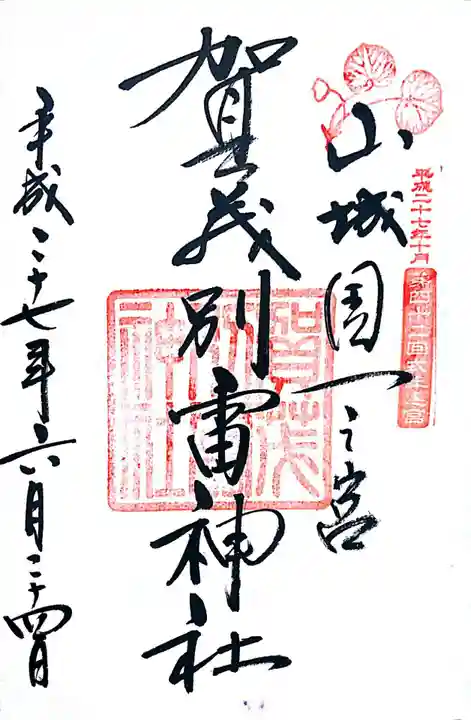 平成二十七年十月
第四十二回式年遷宮
山城國一之宮
賀茂別雷神社
平成二十七年六月二十四日